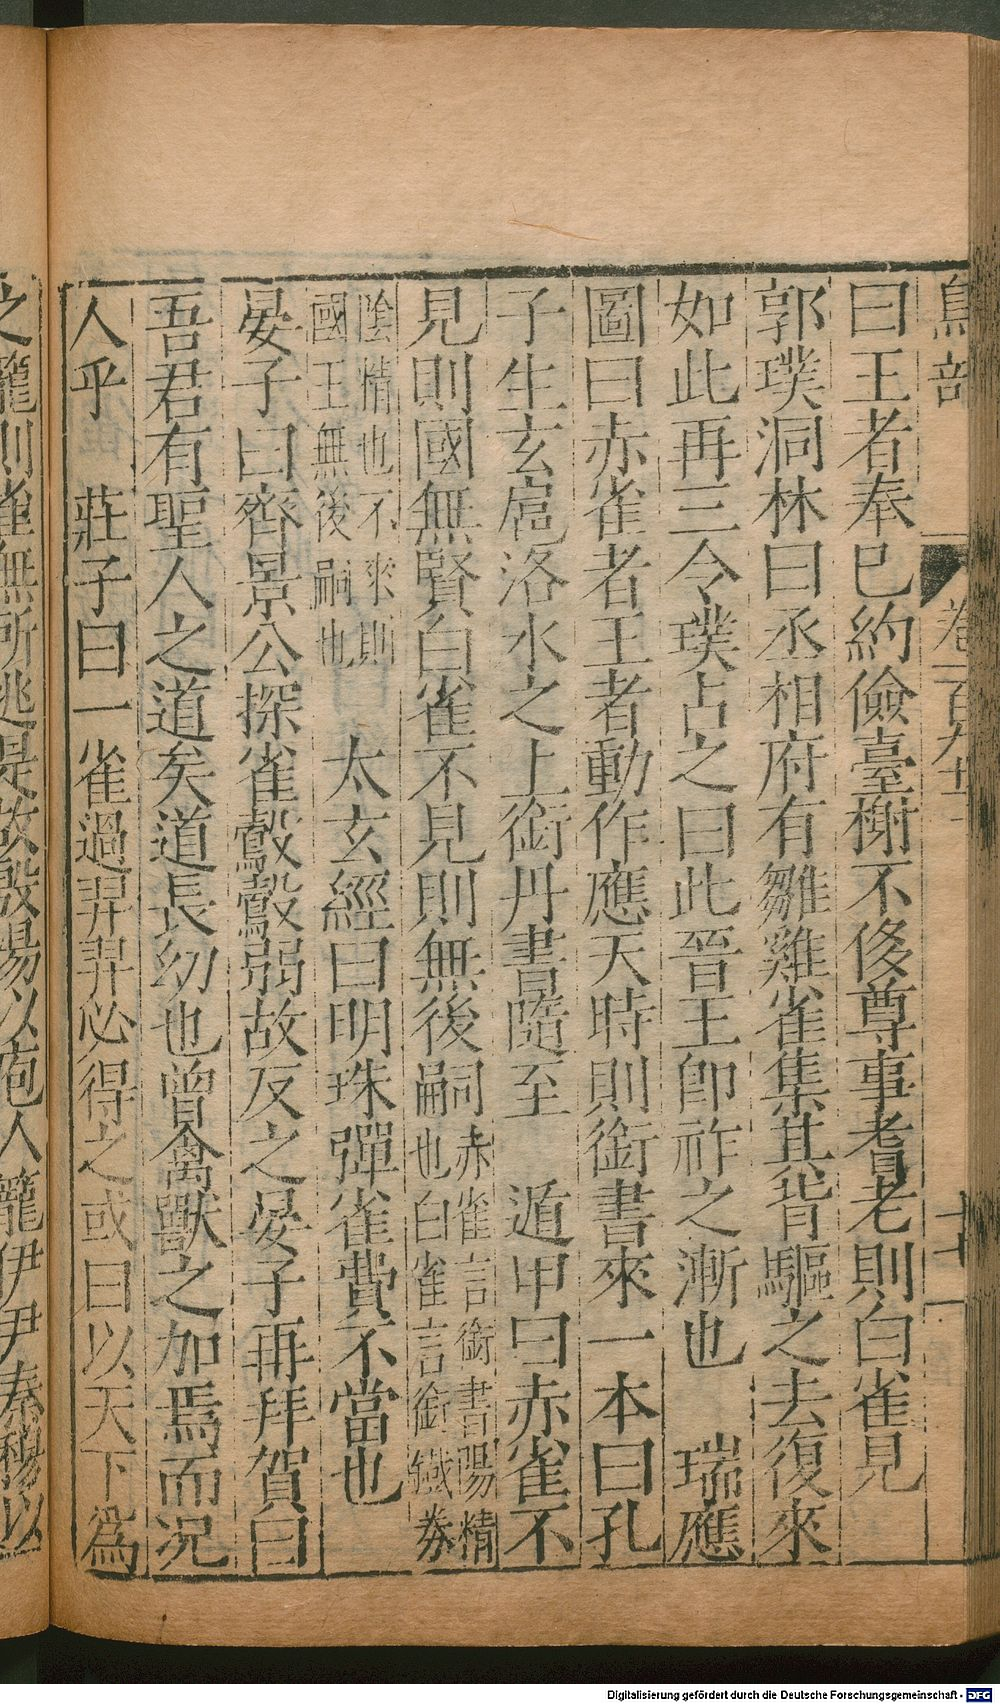 鳥部
曰王者奉已約儉臺榭不侈尊事耆老則白雀見
郭璞洞林曰丞相府有雛雞雀集其背驅之去復來
如此再三令璞占之曰此晉王即祚之漸也　瑞應
圖曰赤雀者王者動作應天時則銜書來一本曰孔
子生玄扈洛水之上銜丹書隨至　遁甲曰赤雀不
見則國無賢白雀不見則無後嗣赤雀言銜書陽精也白雀言銜鐵券
陰精也不來則國王無後嗣也　太玄經曰明珠彈雀費不當也
晏子曰齊景公探雀鷇鷇弱故反之晏子再拜賀曰
吾君有聖人之道矣道長幼也曾禽獸之加焉而况
人乎　莊子曰一雀過羿羿必得之或曰以天下爲
之籠則雀無所逃是故殷湯以庖人籠伊尹秦穆以
Digitalisierung gefördert durch die Deutsche Forschungsgemeinschaft - DFG